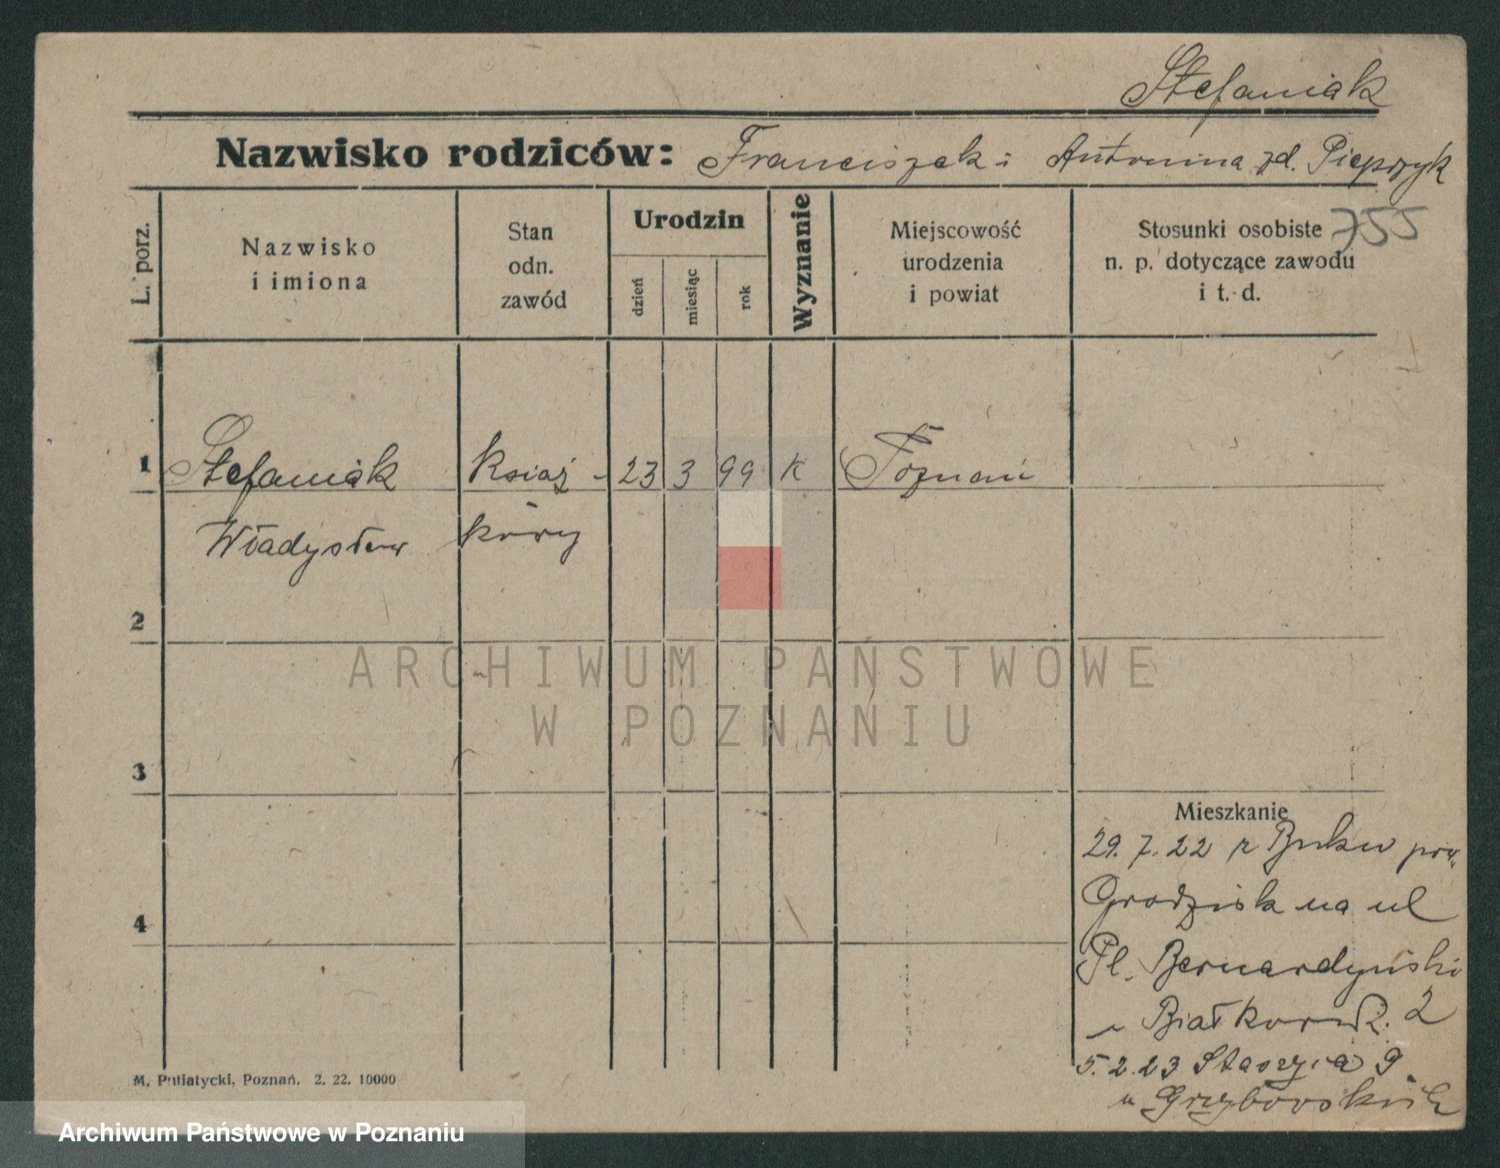 Stefaniak
Nazwisko rodziców: Franciszek i Antonina zd. Pieprzyk
755
L. porz.
Nazwisko
i imiona
Stan
odn.
zawód
Urodzin
dzień
miesiąc
rok
Wyznanie
Miejscowość
urodzenia
i powiat
Stosunki osobiste
n. p. dotyczące zawodu
i t. d.
1 Stefaniak Książ- 23 3 99 K Poznań
Władysław kowy
2
3
4
ARCHIWUM PAŃSTWOWE
W POZNANIU
Mieszkanie
29. 7. 22 z Buku pow.
Grodzisk na ul
Pl. Bernardyński
u 2
5. 2. 23 Staszyca 9
u
M. Putiatycki, Poznań. 2. 22. 10000
Archiwum Państwowe w Poznaniu